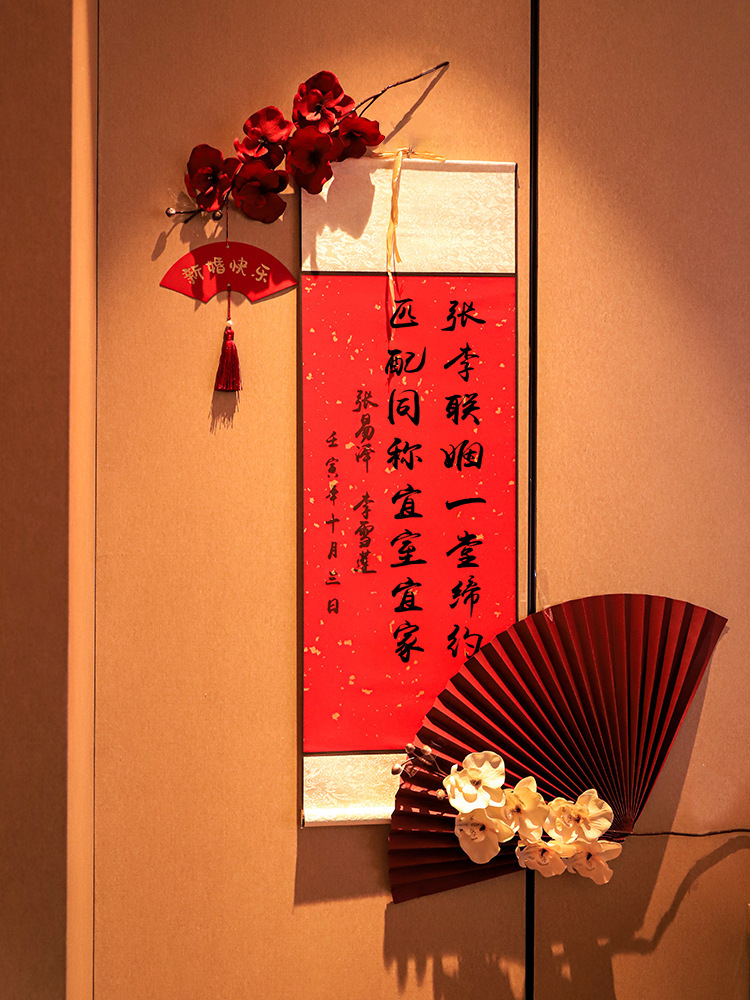 新婚快乐
张李联姻一堂缔约
匹配同称宜室宜家
张易泽 李雪莲
壬寅年十月三日